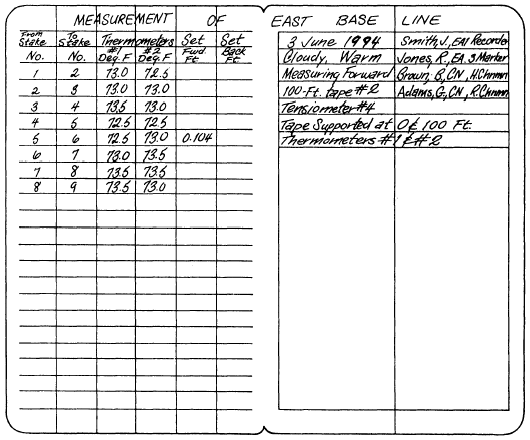 MEASUREMENT OF EAST BASE LINE
From Stake No. To Stake No. Thermometers #1 Deg. F #2 Deg. F Set Fwd. Ft. Set Back Ft.
1 2 73.0 72.5
2 3 73.0 73.0
3 4 73.5 73.0
4 5 72.5 72.5
5 6 72.5 73.0 0.104
6 7 73.0 73.5
7 8 73.5 73.5
8 9 73.5 73.0
3 June 1994 Smith, J., EA1 Recorder
Cloudy, Warm Jones, R., EA. 3 Marker
Measuring Forward Brown, B, CN, H.Chnmn
100-Ft. tape #2 Adams, G, CN, R.Chnmn
Tensiometer #4
Tape Supported at 0 & 100 Ft.
Thermometers #1 & #2